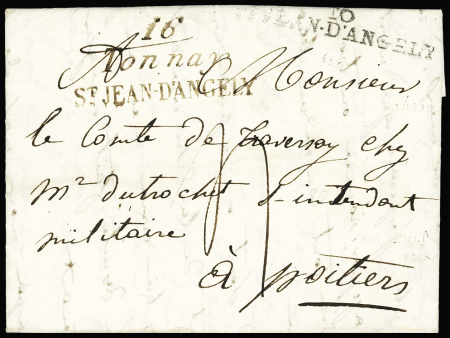 16
Tonnay
ST JEAN-D'ANGELY
10
ST JEAN-D'ANGELY
A Monsieur
le Comte de Traversay chez
Mr dutrochet s-intendant
militaire
à poitiers